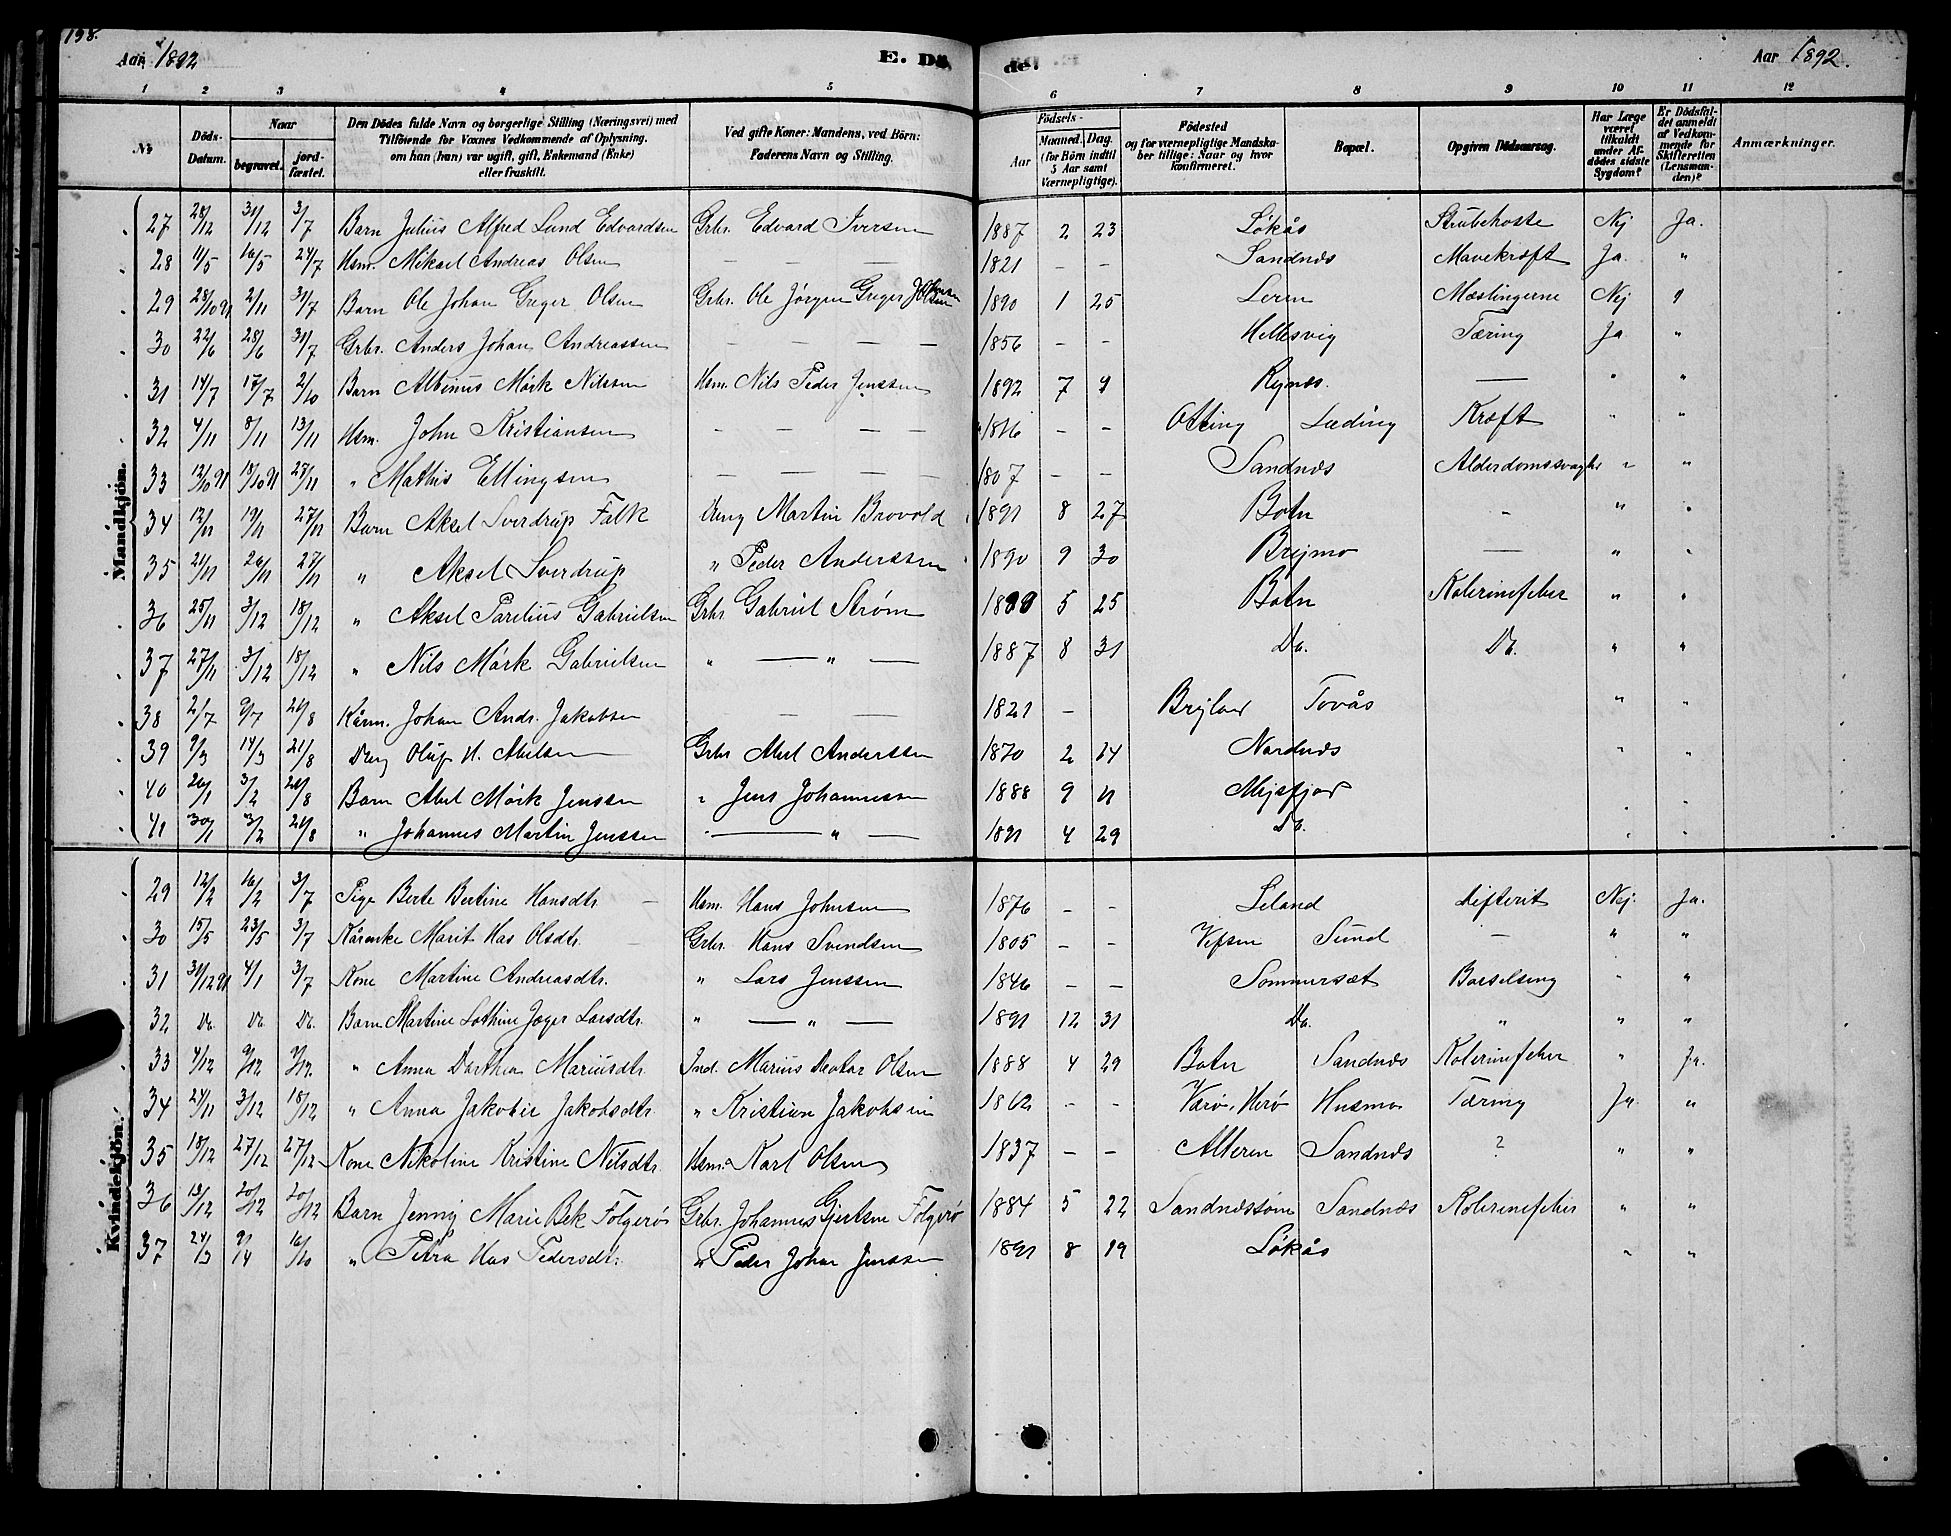 198.
Aar 1892 E. Dö de. Aar 1892.
1 2 3 4 5 6 7 8 9 10 11 12
Nr. Döds-Datum. Naar begravet. jord-fæstet. Den Dödes fulde Navn og borgerlige Stilling (Næringsvei) med Tilföiende for Voxnes Vedkommende af Oplysning, om han (hun) var ugift, gift, Enkemand (Enke) eller fraskilt. Ved gifte Koner: Mandens, ved Börn: Faderens Navn og Stilling. Födsels- Aar Maaned. Dag. (for Börn indtil 5 Aar samt Værnepligtige). Födested og for værnepligtige Mandska-ber tillige: Naar og hvor Konfirmeret. Bopæl. Opgiven Dödsaarsag. Har Læge været tilkaldt under Af-dödes sidste Sygdom? Er Dödsfal-det anmeldt af Vedkom-mende for Skifteretten (Lensman-den)? Anmærkninger.
Mandkjön.
27 28/12 31/12 3/7 Barn Julius Alfred Lund Edvardsen Grbr. Edvard Iversen 1887 2 23 Løkås Strubehoste Nej Ja.
28 11/5 16/5 24/7 Hsm. Mikael Andreas Olsen — — — 1821 — — Sandnæs Mavekræft Ja. "
29 28/10 91 2/11 31/7 Barn Ole Johan Greger Olsen Grbr. Ole Jørgen Greger Olsen 1890 1 25 Leren Mæslingerne Nej "
30 22/6 28/6 31/7 Grbr. Anders Johan Andreassen — — — 1856 — — Hellesvig Tæring Ja "
31 14/7 17/7 2/10 Barn Albinus Mörk Nilssen Hsm. Nils Peder Jenssen 1892 7 9 Rynes. — " "
32 4/11 8/11 13/11 Hsm. John Kristiansen — — — 1816 — — Otting Læding Kræft " "
33 12/10 91 18/10 91 27/11 " Mathis Ellingsen — — — 1807 — — Sandnæs Alderdomssvaghe " "
34 12/11 19/11 27/11 Barn Aksel Sverdrup Falk Ung Martin Brovold 1891 8 27 Botn - " "
35 21/11 26/11 27/11 " Aksel Sverdrup " Peder Anderssen 1890 9 30 Brejmo — " "
36 25/11 3/12 18/12 " Aksel Parelius Gabrielsen Grbr. Gabriel Strøm 5 25 Botn Kolerinefeber " "
37 27/11 3/12 18/12 " Nils Mörk Gabrielsen " — " — 1887 8 31 Do. Do. " "
38 2/7 9/7 21/8 Kårm. Johan Andr. Jakobsen — — 1821 — Brejland Tovås " "
39 9/3 14/3 21/8 Olup H. Abelsen Grbr Abel Anderssen 1870 2 14 Nordnæs " "
40 26/1 3/2 21/8 Barn Abel Mörk Jenssen " Jens Johannessen 1888 9 11 Mejsfjor " "
41 30/1 3/2 21/8 " Johannes Martin Jenssen " — " — 1891 4 29 Do. " "
Kvindekjön.
29 12/2 16/2 3/7 Pige Berte Bertine Hansdtr. Hsm. Hans Johnsen 1876 — — Leland Difterit Nej. Ja.
30 15/5 23/5 3/7 Kårenke Marit Has Olsdtr. Grbr. Hans Svendsen 1805 — — Vefsen Sund — " "
31 31/12 91 4/1 3/7 Kone Martine Andreasdtr. " Lars Jenssen 1846 — — Sommersæt Barselseng " "
32 Do Do. Do. Barn Martine Lothine Jæger Larsdtr. " — " — 1891 12 31 Do. " " "
33 4/12 9/12 9/12. " Anna Dorthea Mariusdtr. Ind. Marius Deotar Olsen 1888 4 29 Botn Sandnæs Kolerinefeber " Ja.
34 24/11 3/12 18/12 " Anna Jakobie Jakobsdtr. " Kristian Jakobsen 1862 — — Varø. Herø Husmo Tæring Ja "
35 18/12 27/12 27/12 Kone Nikoline Kristine Nilsdtr. Hsm. Karl Olsen 1837 — — Alteren Sandnæs ? " "
36 13/12 20/12 20/12 Barn Jenny Marie Bek Folgerø Grbr. Johannes Gjertsen Folgerø 1884 5 22 Sandnæstøen Sandnæs Kolerinefeber " "
37 24/3 9/4 16/10 " Petra Has Pedersdtr. " Peder Johan Jenssen 1891 8 19 Løkås " "